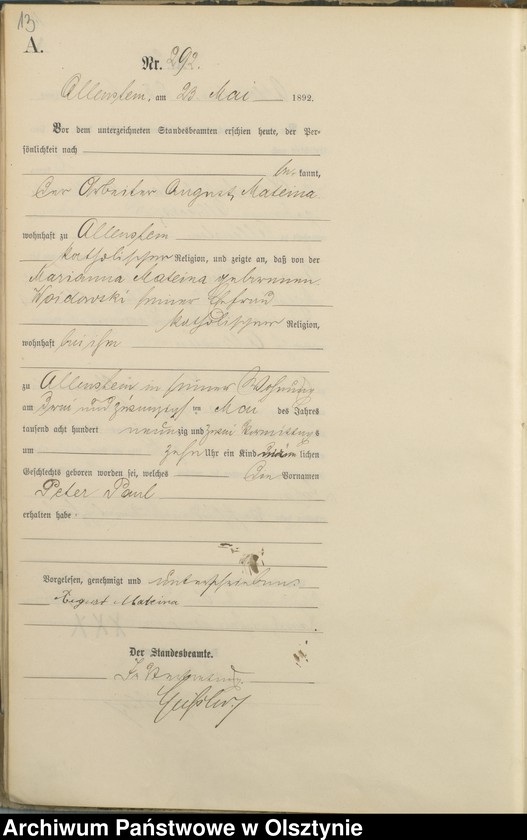 13
A.
Nr. 292.
Allenstein, am 23. Mai 1892.
Vor dem unterzeichneten Standesbeamten erschien heute, der Per-
sönlichkeit nach
be kannt,
der Arbeiter August Mateina
wohnhaft zu Allenstein
katholischer Religion, und zeigte an, daß von der
Marianna Mateina geborenen
Woidowski seiner Ehefrau
katholischer Religion,
wohnhaft bei ihm
zu Allenstein in seiner Wohnung
am drei und zwanzigsten Mai des Jahres
tausend acht hundert neunzig und zwei Vormittags
um zehn Uhr ein Kind männlichen
Geschlechts geboren worden sei, welches den Vornamen
Peter Paul
erhalten habe.
Vorgelesen, genehmigt und unterschrieben
August Mateina
Der Standesbeamte.
In Vertretung
Archiwum Państwowe w Olsztynie